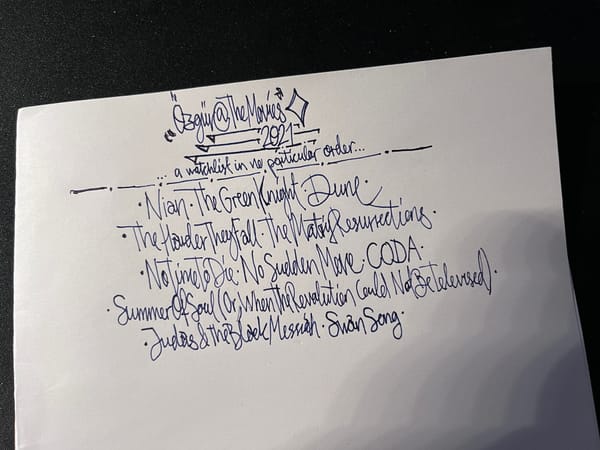 "Özgür@TheMovies"
2021
... a watchlist in no particular order...
· Nian · The Green Knight · Dune ·
· The Harder They Fall · The Matrix Resurrections ·
· No Time To Die · No Sudden Move · CODA ·
· Summer Of Soul (Or, When The Revolution Could Not Be Televised) ·
· Judas & the Black Messiah · Swan Song ·